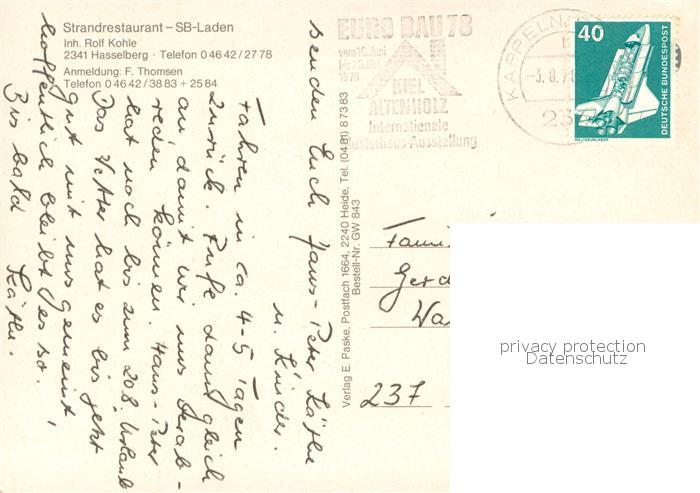 Strandrestaurant – SB-Laden
Inh. Rolf Kohle
2341 Hasselberg · Telefon 0 46 42 / 27 78
Anmeldung: F. Thomsen
Telefon 0 46 42 / 38 83 + 25 84
EURO BAU 78
vom 16. Juni
1978
KIEL
ALTENHOLZ
Internationale
Musterhaus-Ausstellung
KAPPELN,
-3. 8. 78
40
DEUTSCHE BUNDESPOST
WELTRAUMLABOR
senden Euch Hans-Peter Käthe
u. Kinder.
Fahren in ca. 4-5 Tagen
zurück. Rufe dann gleich
an damit wir uns verab-
reden können. Hans-Peter
hat noch bis zum 20 8. Urlaub
Das Wetter hat es bis jetzt
gut mit uns gemeint,
hoffentlich bleibt es so.
Bis bald Käthe.
Verlag E. Paske, Postfach 1664, 2240 Heide, Tel. (0481) 8 73 83
Bestell-Nr. GW 843
Fami
Gerd
237
privacy protection
Datenschutz